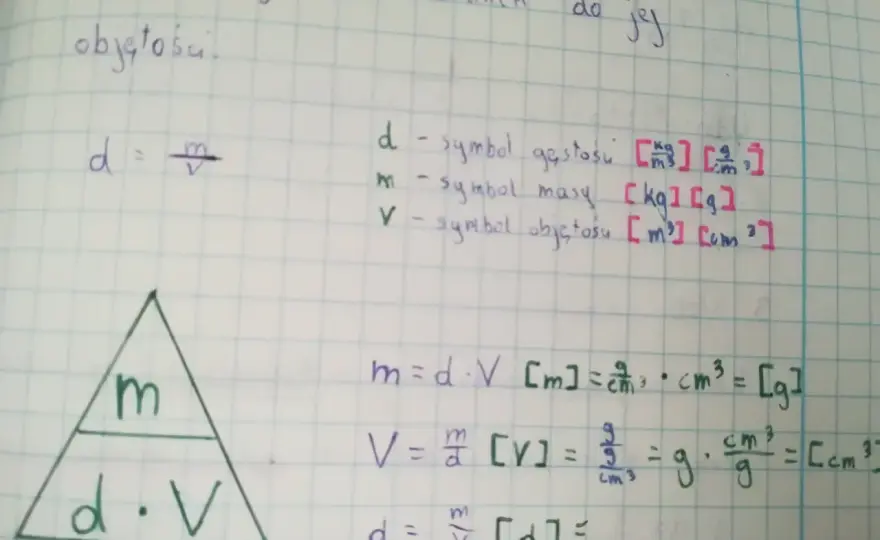 do jej
objętości.
d = m/v
d - symbol gęstości [kg/m³] [g/cm³]
m - symbol masy [kg] [g]
V - symbol objętości [m³] [cm³]
m
d · V
m = d · V [m] = g/cm³ · cm³ = [g]
V = m/d [V] = g/(g/cm³) = g · cm³/g = [cm³]
d = m/v [d] =